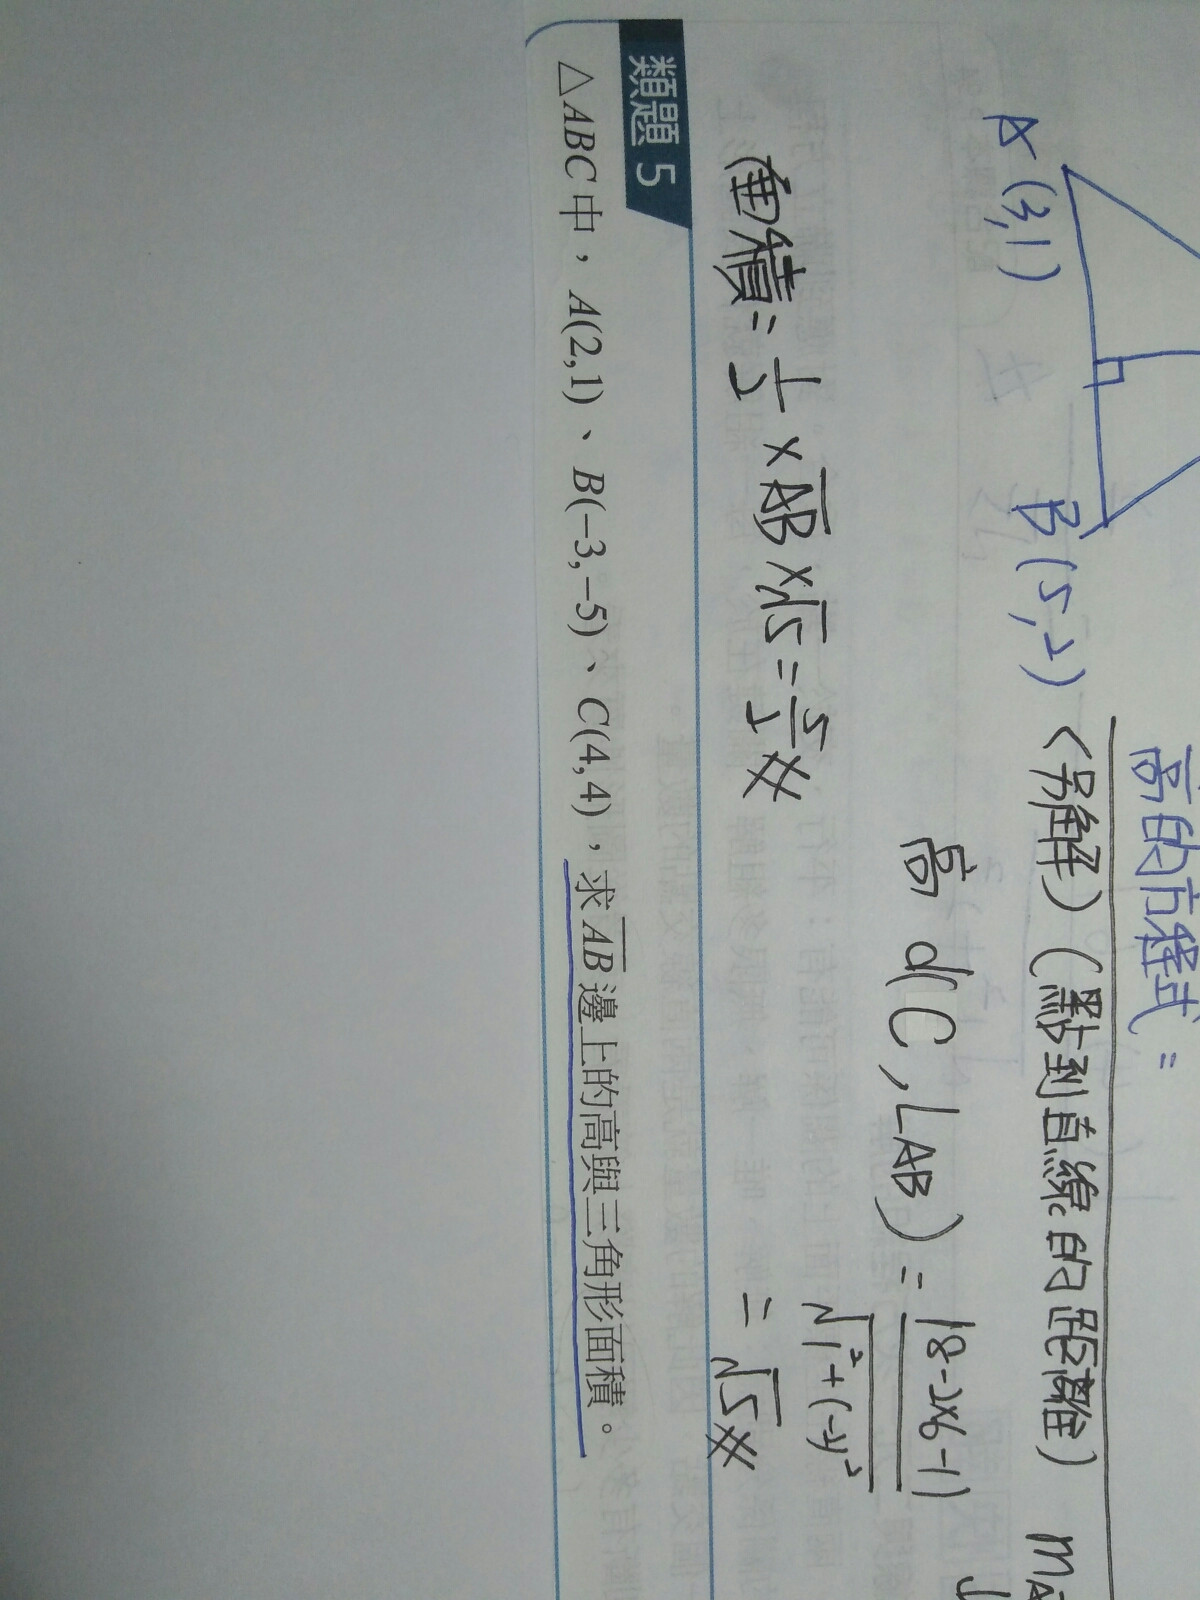 高的方程式=
A(3,1)
B(5,2)
<另解>(點到直線的距離)
高 d(C,L_AB) = |8-2×6-1| / √(1²+(-2)²)
= √5
面積 = 1/2 × AB × √5 = 5/2
類題 5
△ABC中，A(2,1)、B(-3,-5)、C(4,4)，求AB邊上的高與三角形面積。